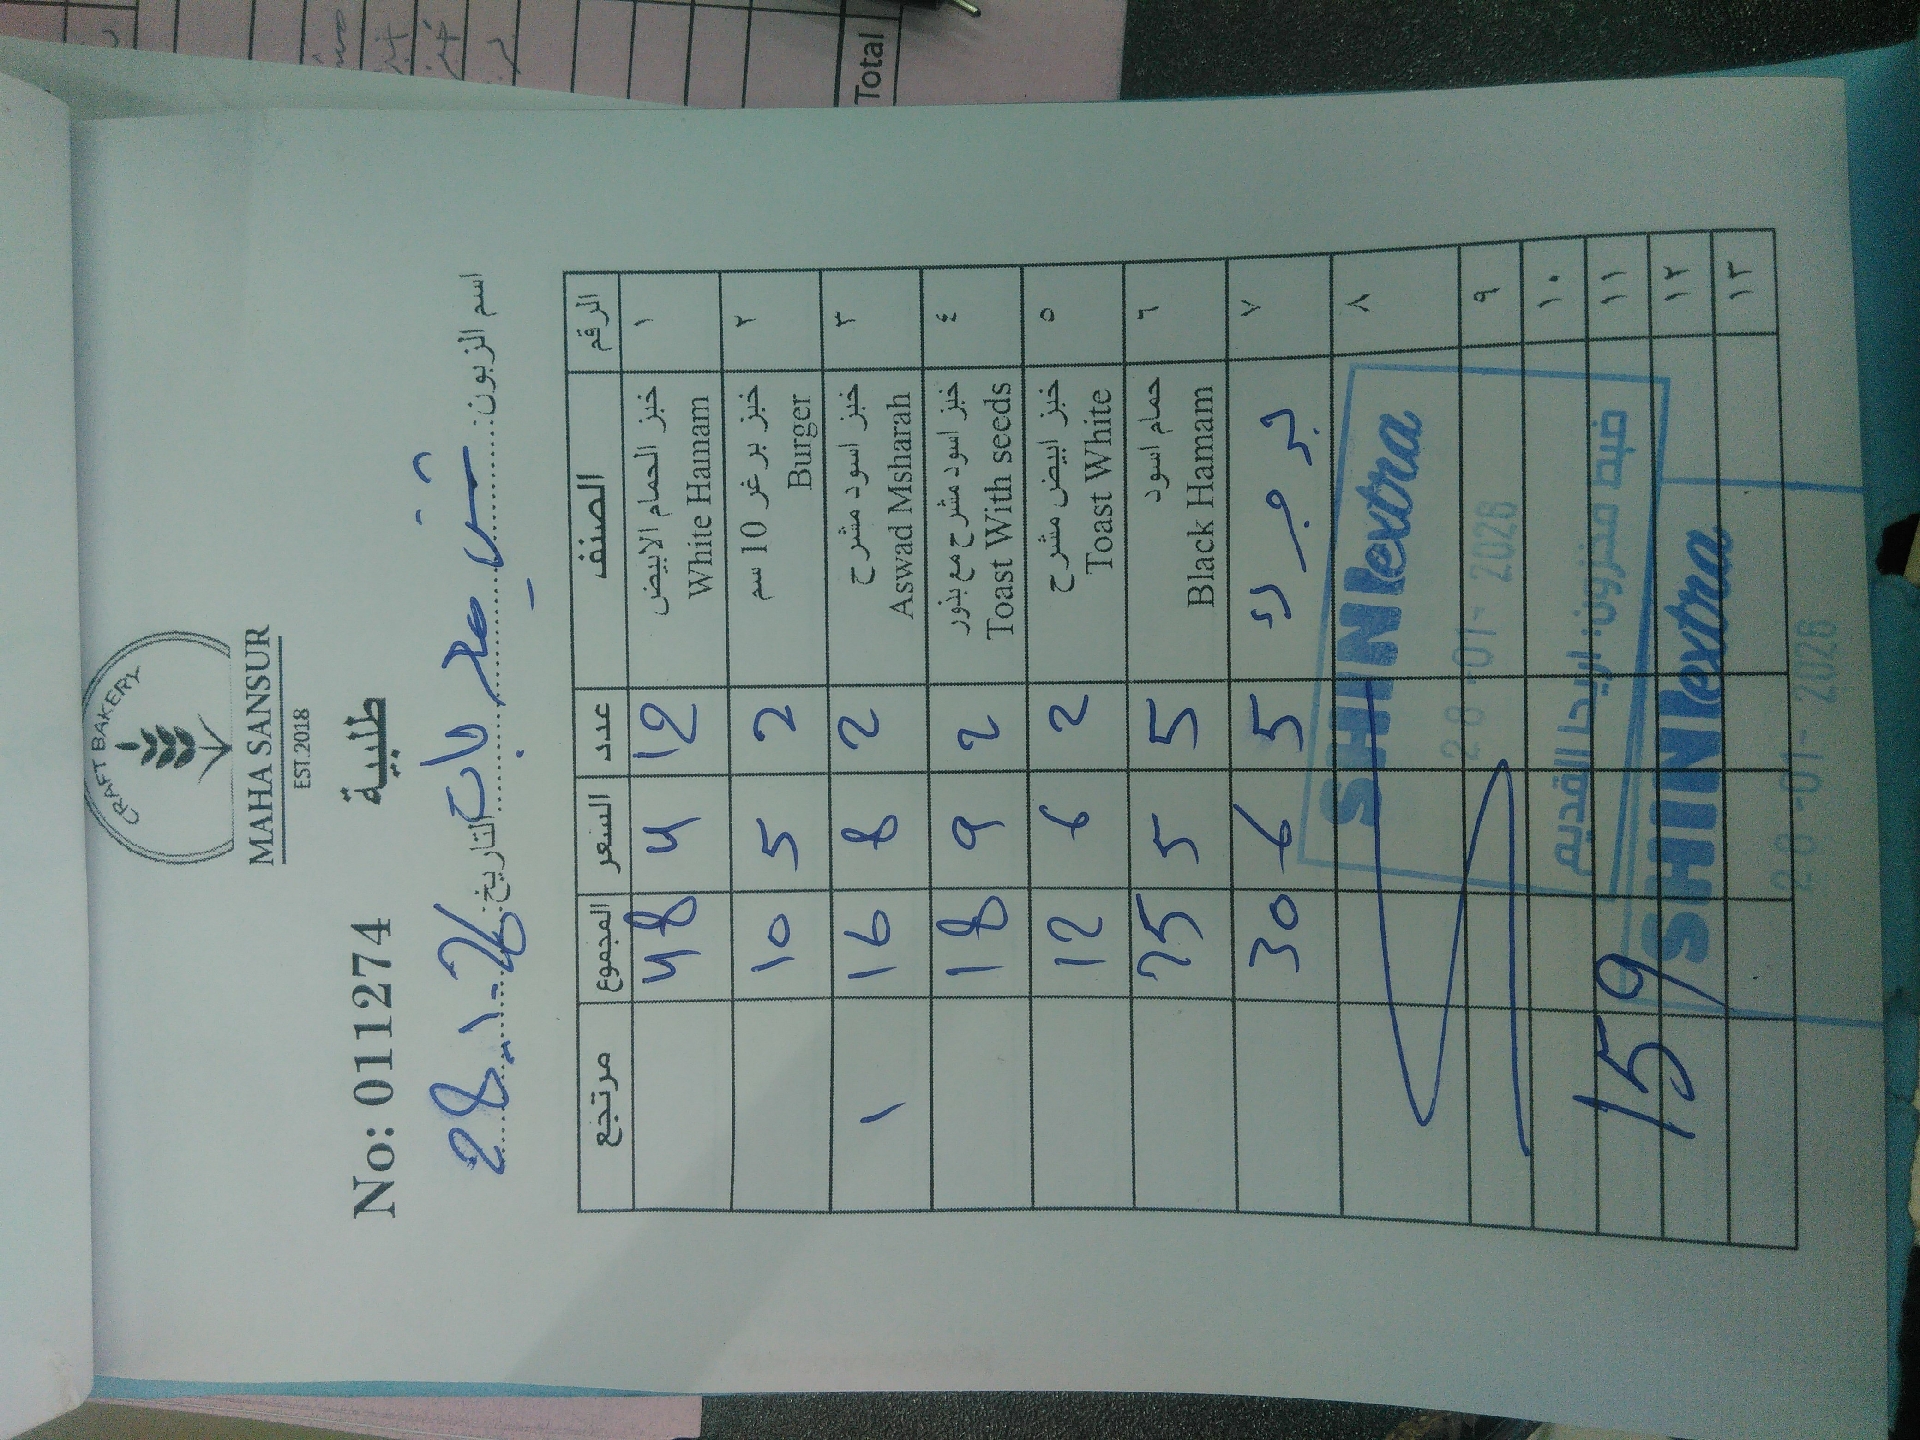 CRAFT BAKERY
MAHA SANSUR
EST.2018
طلبية
No: 011274
اسم الزبون:
التاريخ: 28-1-26
الرقم الصنف عدد السعر المجموع مرتجع
١ خبز الحمام الابيض 12 4 48
White Hamam
٢ خبز برغر 10 سم 2 5 10
Burger
٣ خبز اسود مشرح 2 8 16 ١
Aswad Msharah
٤ خبز اسود مشرح مع بذور 2 9 18
Toast With seeds
٥ خبز ابيض مشرح 2 6 12
Toast White
٦ حمام اسود 5 5 25
Black Hamam
٧ 5 6 30
٨
SHINIextra
٩
28-01-2026
١٠
ضبط مخزون: اريحا القديم
١١
159
١٢
SHINIextra
١٣
28-01-2026
Total